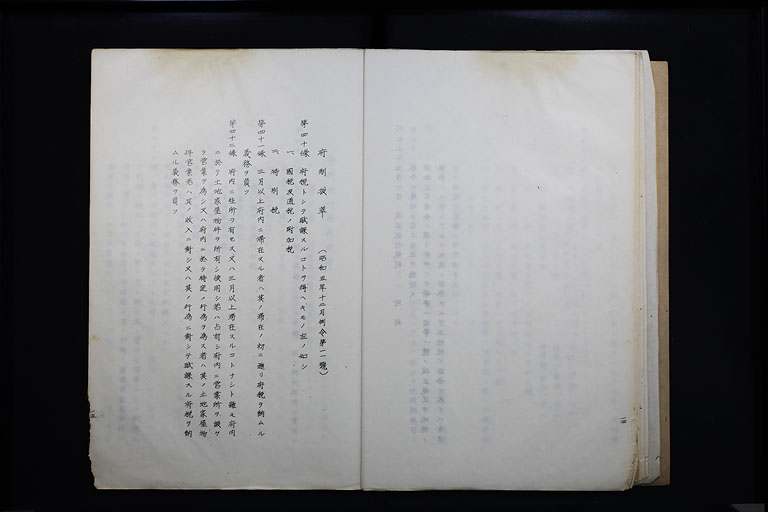 府制抜萃　（昭和五年十二月制令第一一號）
第四十條　府税トシテ賦課スルコトヲ得ヘキモノ左ノ如シ
一、國税又道税ノ附加税
二、特別税
第四十一條　三月以上府内ニ滞在スル者ハ其ノ滞在ノ初ニ遡リ府税ヲ納ムル
義務ヲ負フ
第四十二條　府内ニ住所ヲ有セス又ハ三月以上滞在スルコトナシト雖モ府内
ニ於テ土地家屋物件ヲ所有シ使用シ若ハ占有シ府内ニ営業所ヲ設ケ
テ営業ヲ為シ又ハ府内ニ於テ特定ノ行為ヲ為ス者ハ其ノ土地家屋物
件営業若ハ其ノ収入ニ對シ又ハ其ノ行為ニ對シテ賦課スル府税ヲ納
ムル義務ヲ負フ